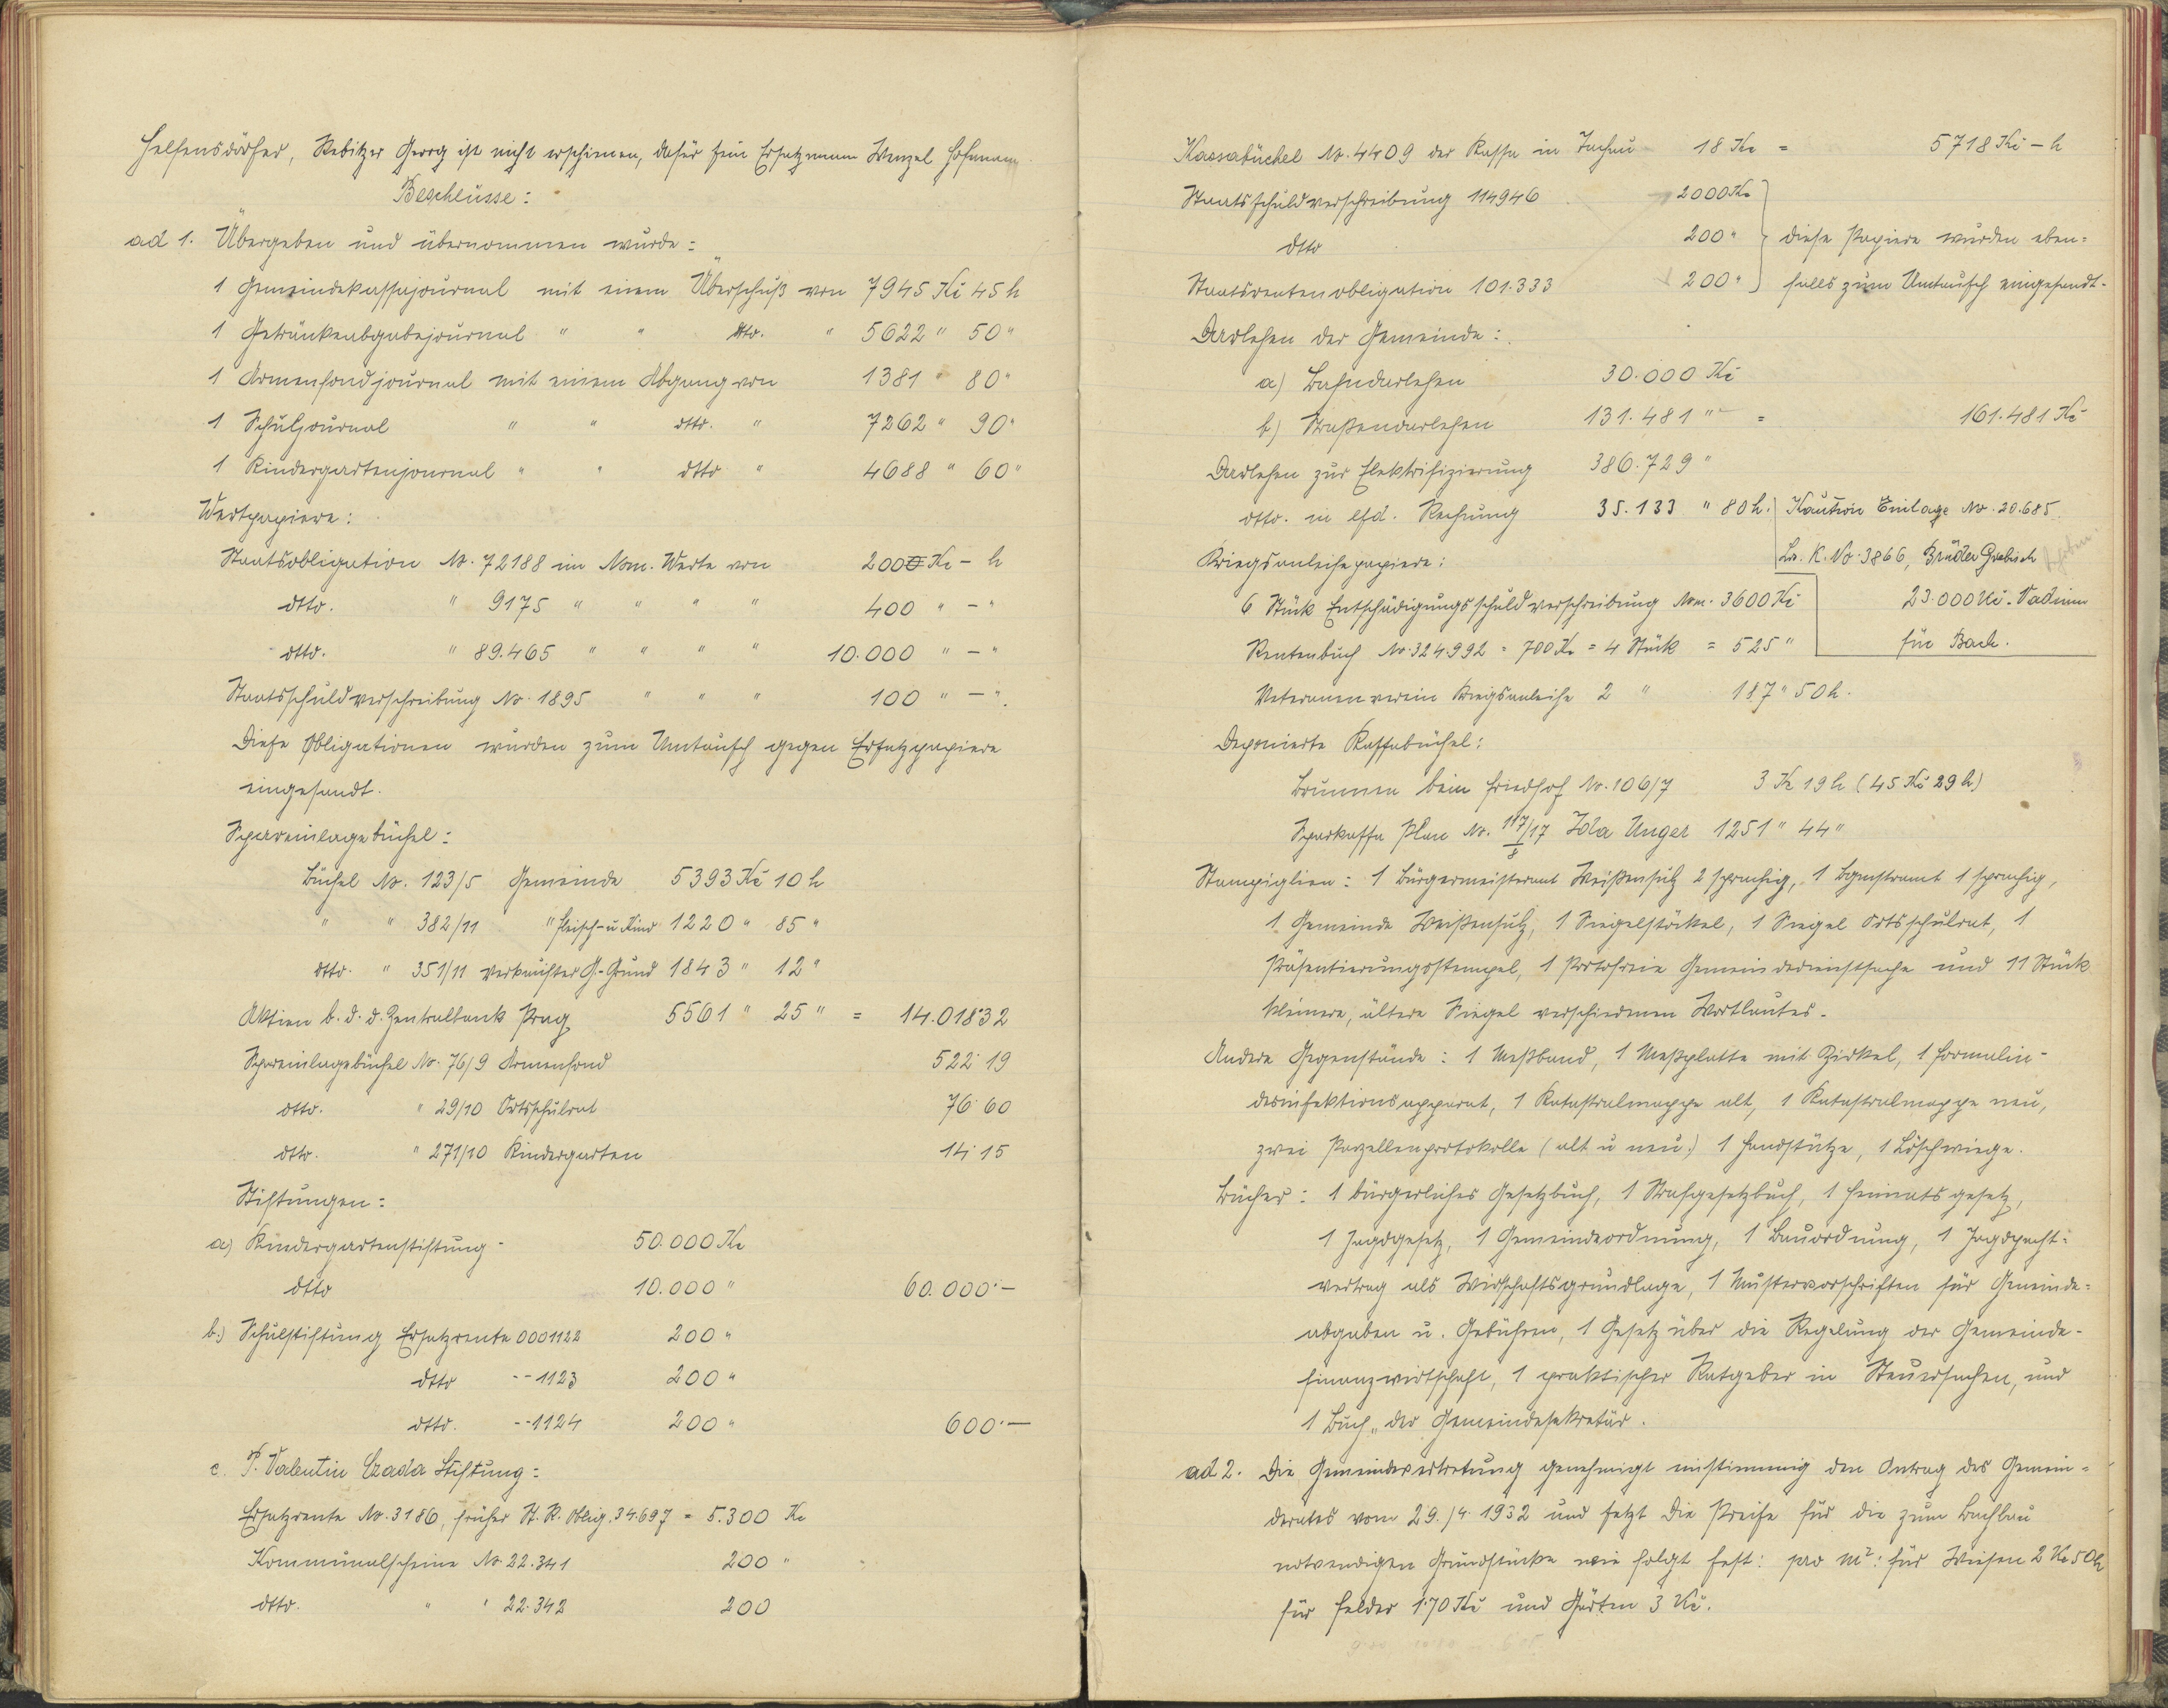 Helfensdörfer, Rebitzer Georg ist nicht erschienen, dafür sein Ersatzmann Wenzel Hofmann
Beschlüsse:
ad 1. Übergeben und übernommen wurde:
1 Gemeindekassajournal mit einem Überschuß von 7945 Kč 45 h
1 Getränkeabgabejournal " " dtto. " 5622 " 50 "
1 Armenfondjournal mit einem Abgang von 1381 " 80 "
1 Schuljournal " " dtto. " 7262 " 90 "
1 Kindergartenjournal " " dtto " 4688 " 60 "
Wertpapiere:
Staatsobligation No. 72188 im Nom. Werte von 2000 Kč - h
dtto. " 9175 " " " " 400 " - "
dtto. " 89.465 " " " " 10.000 " - "
Staatsschuldverschreibung No. 1895 " " " 100 " - ".
Diese Obligationen wurden zum Umtausch gegen Ersatzpapiere
eingesandt.
Spareinlagebüchel:
Büchel No. 123/5 Gemeinde 5393 Kč 10 h
" " 382/11 " Fleisch- u Rind 1220 " 85 "
dtto. " 351/11 verkaufter G.-Grund 1843 " 12 "
Aktien b. d. d. Zentralbank Prag 5561 " 25 " = 14.018·32
Spareinlagebüchel No. 76/9 Armenfond 522·19
dtto. " 29/10 Ortsschulrat 76·60
dtto. " 271/10 Kindergarten 14·15
Stiftungen:
a) Kindergartenstiftung - 50.000 Kč
dtto 10.000 " 60.000·—
b.) Schulstiftung Ersatzrente 0001122 200 "
dtto --1123 200 "
dtto. --1124 200 " 600·—
c. P. Valentin Czada Stiftung:
Ersatzrente No. 3186, früher St. R. Oblig. 34.697 = 5.300 Kč
Kommunalscheine No. 22.341 200 "
dtto. " " 22.342 200
Kassabüchel No. 4409 der Kassa in Tachau 18 Kč = 5718 Kč - h
Staatsschuldverschreibung 114946 2000 Kč
dtto 200 " } diese Papiere wurden eben=
Staatsrentenobligation 101.333 200 " falls zum Umtausch eingesandt.
Darlehen der Gemeinde:
a) Bahndarlehen 30.000 Kč
b) Straßendarlehen 131.481 " = 161.481 Kč
Darlehen zur Elektrifizierung 386.729 "
dtto. in lfd. Rechnung 35.133 " 80 h. Kaution Einlage No. 20.685
Kriegsanleihepapiere: K. No. 3866, Brüder Grabisch
6 Stück Entschädigungsschuldverschreibung Nom. 3600 Kč 23.000 Kč. Vadium
Rentenbuch No. 324.992 = 700 Kč = 4 Stück = 525 " für Bach.
Veteranenverein Kriegsanleihe 2 " 187 " 50 h.
Deponierte Kassabüchel:
Brunnen beim Friedhof No. 106/7 3 Kč 19 h (45 Kč 29 h)
Sparkassa Plan No. 117/17 Ida Unger 1251 " 44 "
Stampiglien: 1 Bürgermeisteramt Weißensulz 2 sprachig, 1 Bgmstramt 1 sprachig,
1 Gemeinde Weißensulz, 1 Siegelstöckel, 1 Siegel Ortsschulrat, 1
Präsentierungsstempel, 1 Portofreie Gemeindedienstsache und 11 Stück
kleinere, ältere Siegel verschiedenen Wortlautes.
Andere Gegenstände: 1 Meßband, 1 Meßplatte mit Zirkel, 1 Formalin-
desinfektionsapparat, 1 Katastralmappe alt, 1 Katastralmappe neu,
zwei Parzellenprotokolle (alt u neu.) 1 Handstütze, 1 Löschwiege.
Bücher: 1 bürgerliches Gesetzbuch, 1 Strafgesetzbuch, 1 Heimatsgesetz,
1 Jagdgesetz, 1 Gemeindeordnung, 1 Bauordnung, 1 Jagdpacht=
vertrag als Wirtschaftsgrundlage, 1 Mustervorschriften für Gemeinde=
abgaben u. Gebühren, 1 Gesetz über die Regelung der Gemeinde-
finanzwirtschaft, 1 praktischer Ratgeber in Steuersachen, und
1 Buch „der Gemeindesekretär.
ad 2. Die Gemeindevertretung genehmigt einstimmig den Antrag des Gemein=
derates vom 29./4. 1932 und setzt die Preise für die zum Bachbau
notwendigen Grundstücke wie folgt fest: pro m²: für Wiesen 2 Kč 50 h
für Felder 1·70 Kč und Gärten 3 Kč.